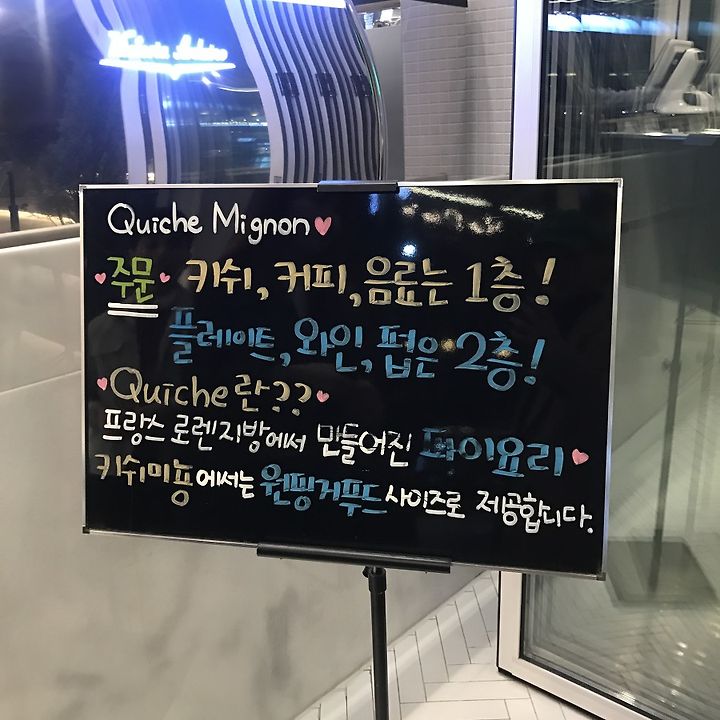 Quiche Mignon♥
♥주문♥ 키쉬, 커피, 음료는 1층!
플레이트, 와인, 펍은 2층!
♥Quiche란??♥
프랑스 로렌지방에서 만들어진 파이요리♥
키쉬미뇽에서는 원핑거푸드 사이즈로 제공합니다.